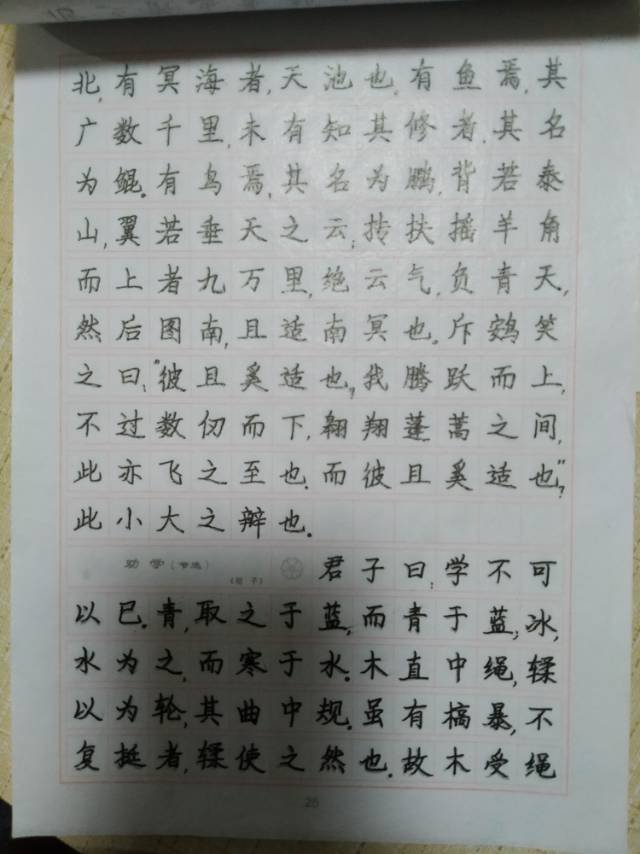 北,有冥海者,天池也.有鱼焉,其
广数千里,未有知其修者,其名
为鲲.有鸟焉,其名为鹏,背若泰
山,翼若垂天之云;抟扶摇羊角
而上者九万里,绝云气,负青天,
然后图南,且适南冥也.斥鴳笑
之曰:"彼且奚适也?我腾跃而上,
不过数仞而下,翱翔蓬蒿之间,
此亦飞之至也.而彼且奚适也"?
此小大之辩也.
劝学(节选)
(荀子)
君子曰:学不可
以已.青,取之于蓝,而青于蓝;冰,
水为之,而寒于水.木直中绳,輮
以为轮,其曲中规.虽有槁暴,不
复挺者,輮使之然也.故木受绳
26